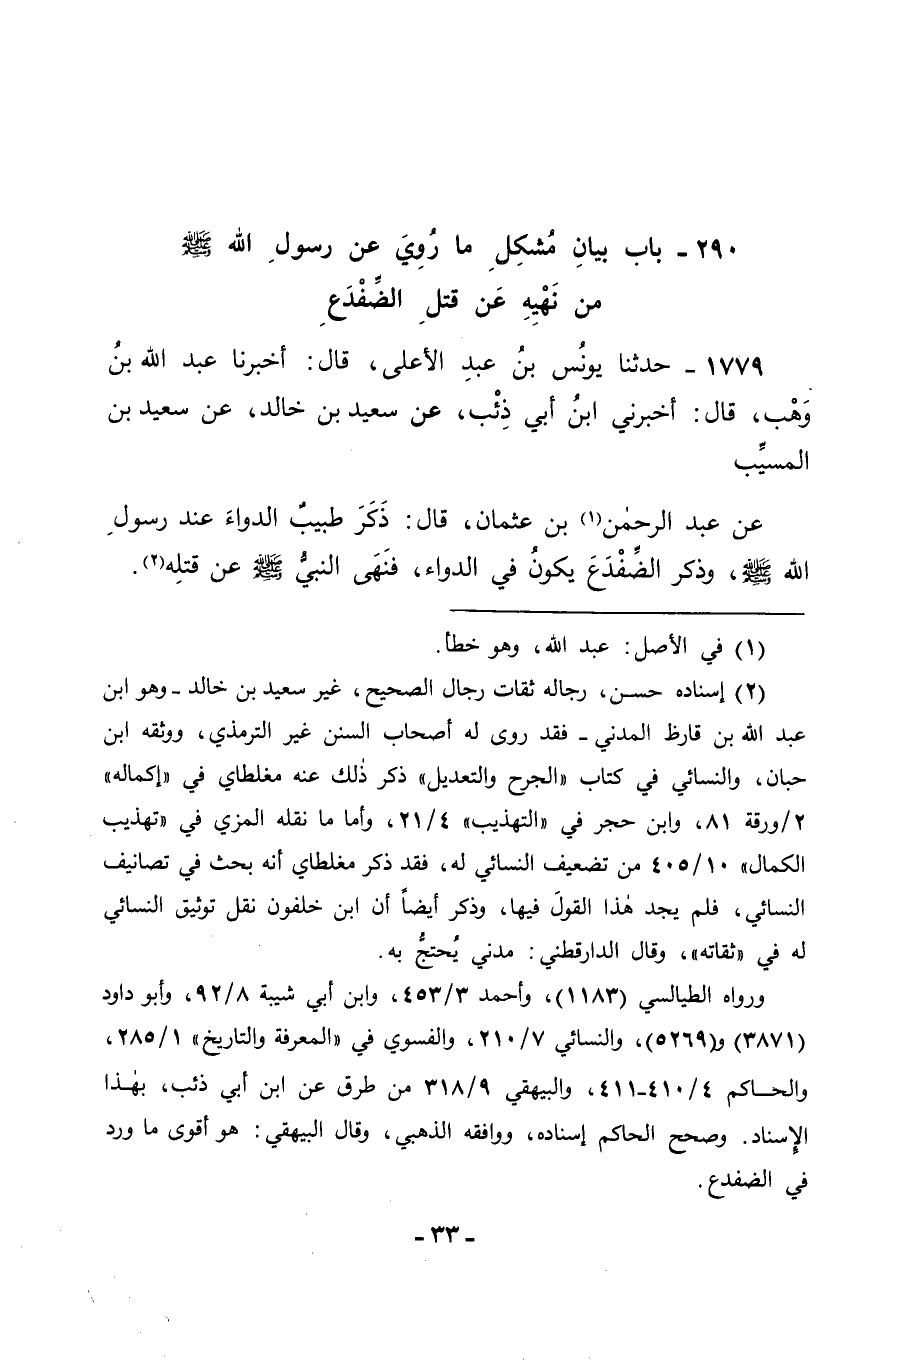 ٢٩٠ - باب بيانِ مُشكِلِ ما رُوِيَ عن رسولِ الله ﷺ
من نَهْيِهِ عَن قتلِ الضِّفْدَعِ
١٧٧٩ - حدثنا يونُس بنُ عبدِ الأعلى، قال: أخبرنا عبد الله بنُ
وَهْب، قال: أخبرني ابنُ أبي ذِئْب، عن سعيد بن خالد، عن سعيد بن
المسيِّب
عن عبد الرحمٰن(١) بن عثمان، قال: ذَكَرَ طبيبٌ الدواءَ عند رسولِ
الله ﷺ، وذكر الضِّفْدَعَ يكونُ في الدواء، فنَهَى النبيُّ ﷺ عن قتلِه(٢).
(١) في الأصل: عبد الله، وهو خطأ.
(٢) إسناده حسن، رجاله ثقات رجال الصحيح، غير سعيد بن خالد - وهو ابن
عبد الله بن قارظ المدني - فقد روى له أصحاب السنن غير الترمذي، ووثقه ابن
حبان، والنسائي في كتاب «الجرح والتعديل» ذكر ذٰلك عنه مغلطاي في «إكماله»
٢/ورقة ٨١، وابن حجر في «التهذيب» ٢١/٤، وأما ما نقله المزي في «تهذيب
الكمال» ٤٠٥/١٠ من تضعيف النسائي له، فقد ذكر مغلطاي أنه بحث في تصانيف
النسائي، فلم يجد هٰذا القولَ فيها، وذكر أيضاً أن ابن خلفون نقل توثيق النسائي
له في «ثقاته»، وقال الدارقطني: مدني يُحتجُّ به.
ورواه الطيالسي (١١٨٣)، وأحمد ٤٥٣/٣، وابن أبي شيبة ٩٢/٨، وأبو داود
(٣٨٧١) و(٥٢٦٩)، والنسائي ٢١٠/٧، والفسوي في «المعرفة والتاريخ» ٢٨٥/١،
والحاكم ٤١٠/٤-٤١١، والبيهقي ٣١٨/٩ من طرق عن ابن أبي ذئب، بهٰذا
الإسناد. وصحح الحاكم إسناده، ووافقه الذهبي، وقال البيهقي: هو أقوى ما ورد
في الضفدع.
- ٣٣ -